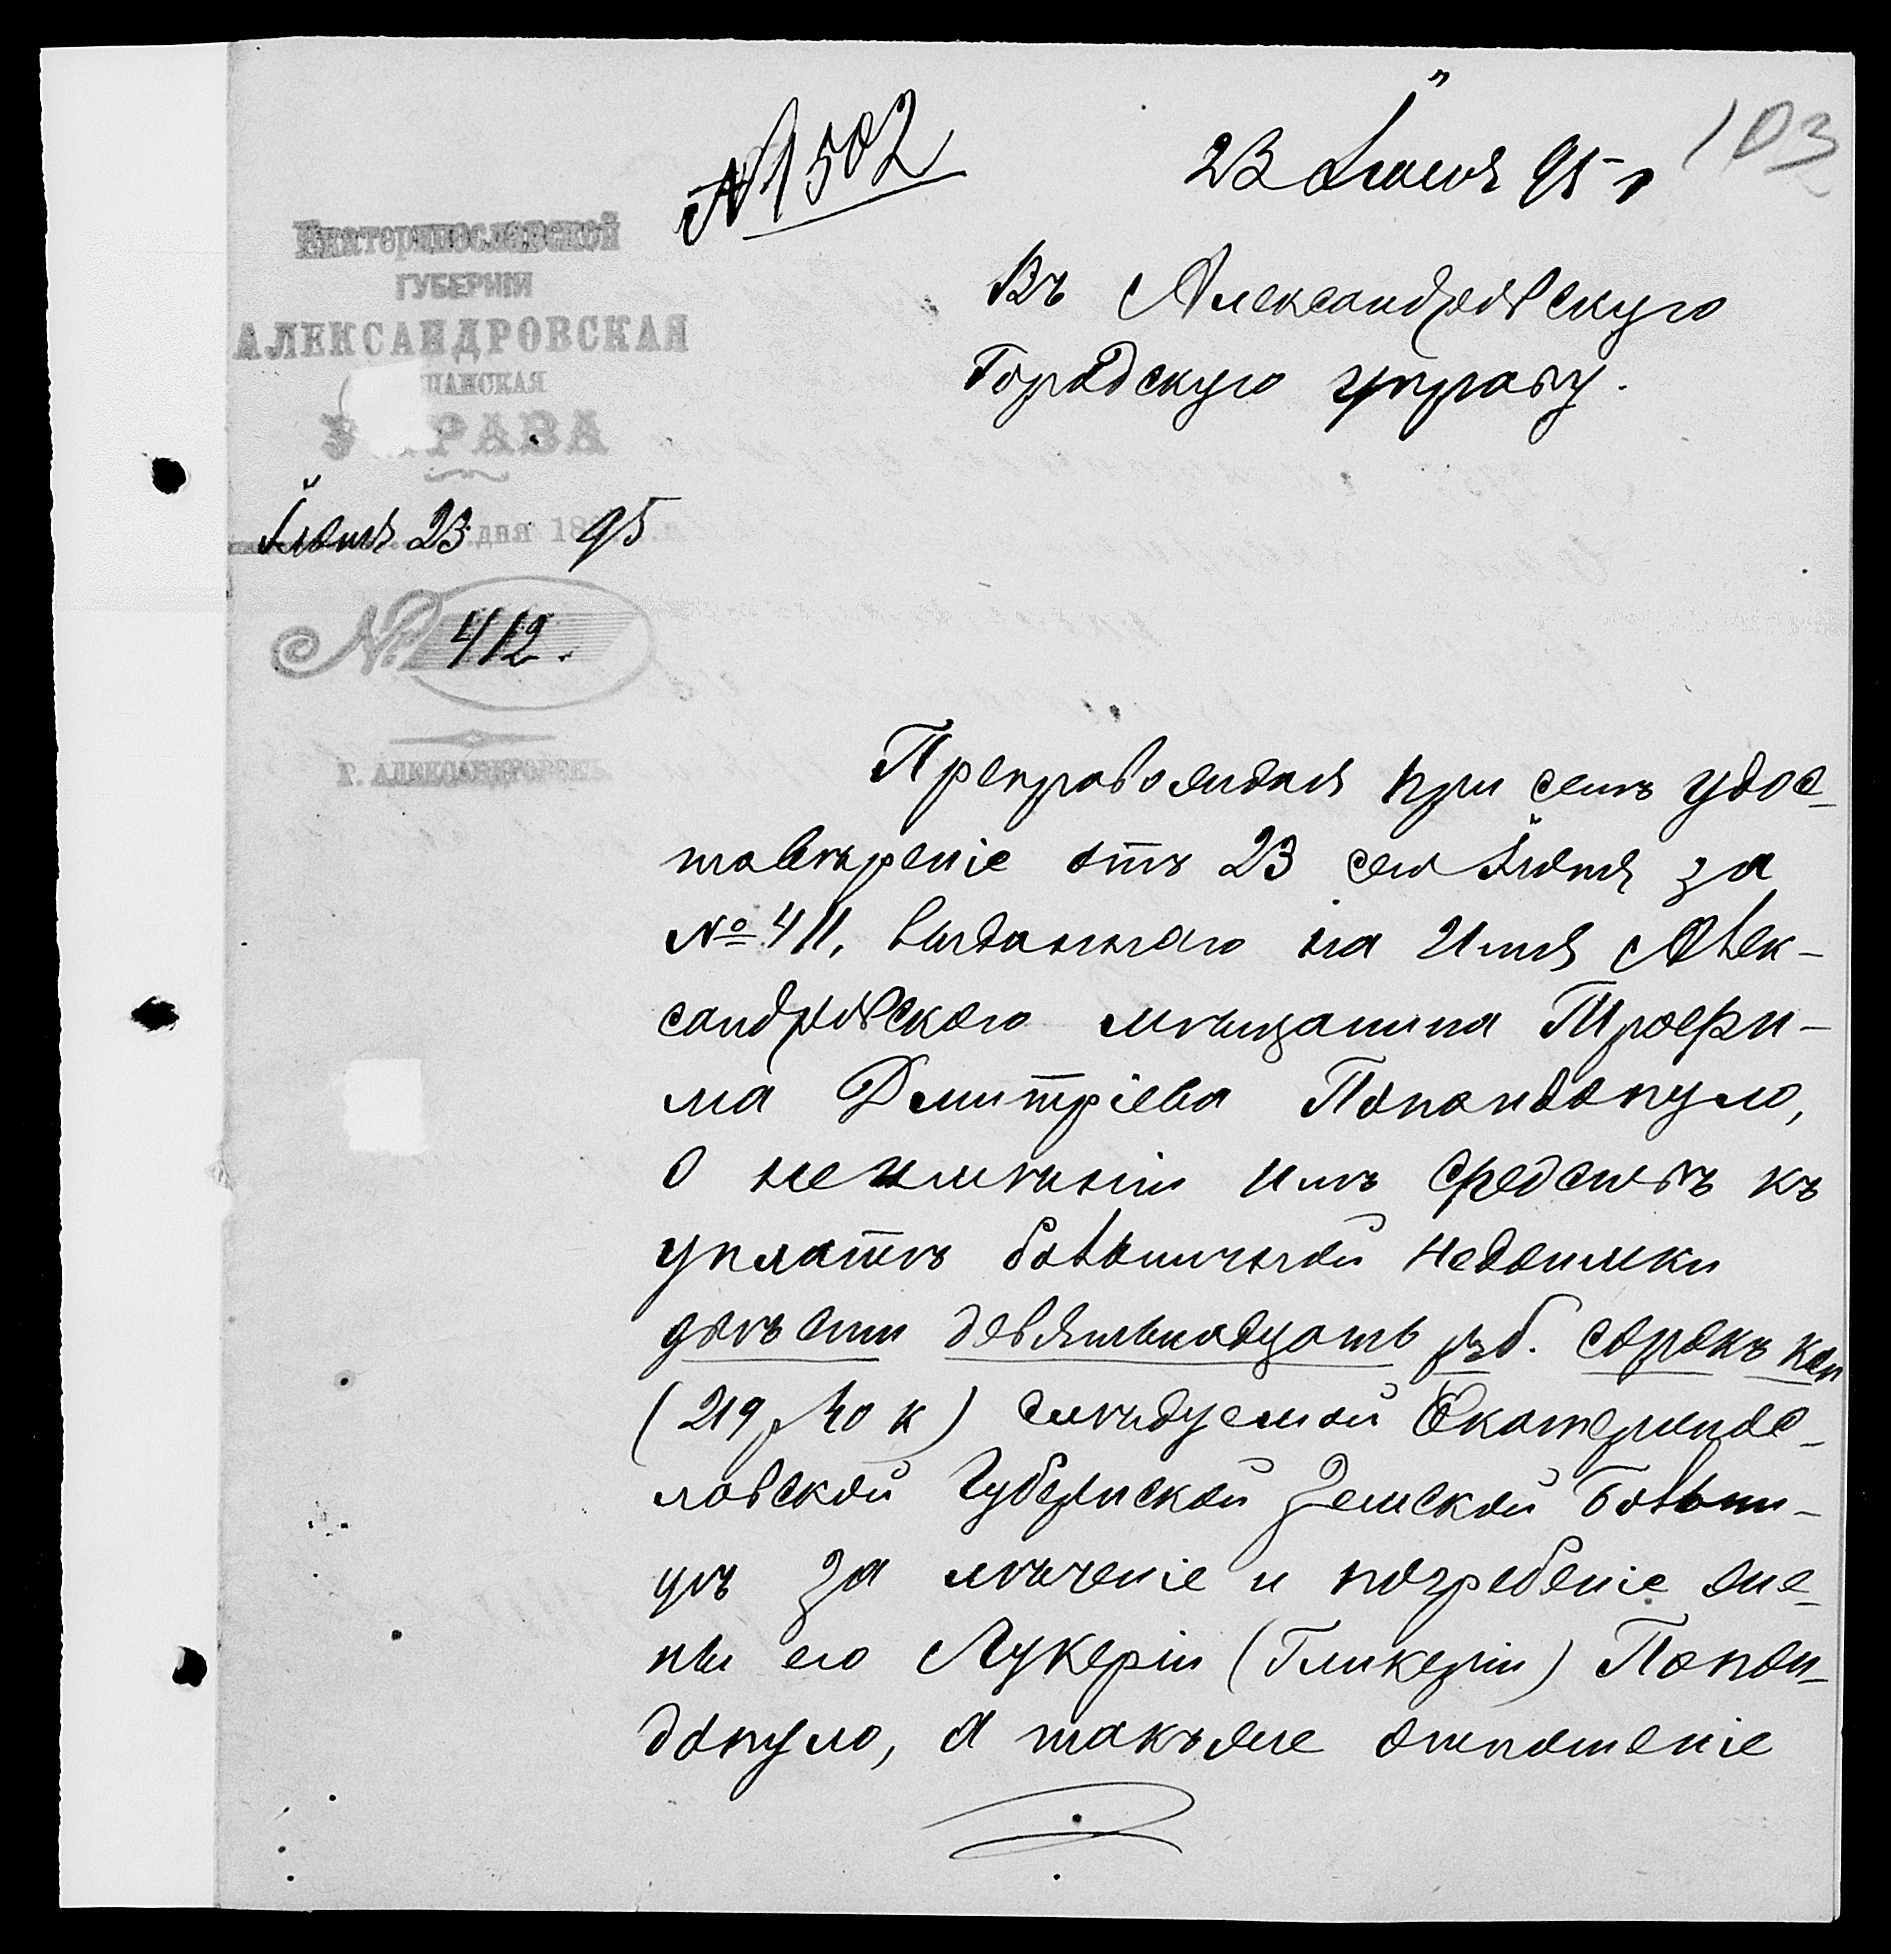 № 1502
23 Іюня 95 г
103
Екатеринославской
ГУБЕРНІИ
АЛЕКСАНДРОВСКАЯ
ЩАНСКАЯ
У РАВА
Іюня 23 дня 18 95
№ 412.
Г. АЛЕКСАНДРОВСКЪ
Въ Александровскую
Городскую управу.
Препровождая при семъ удос-
товѣреніе отъ 23 сего Іюня за
№ 411, выданнаго на Имя Алек-
сандровского мѣщанина Трофи-
ма Дмитріева Попандопуло,
о неимѣніи имъ средствъ къ
уплатѣ больничной недоимки
двѣсти девятьнадцать руб. сорокъ коп
(219 р 40 к) слѣдуемой Екатеринос-
лавской Губернской Земской Больни-
цѣ за лѣченіе и погребеніе же-
ны его Лукеріи (Гликеріи) Попан-
допуло, а такъже отношеніе